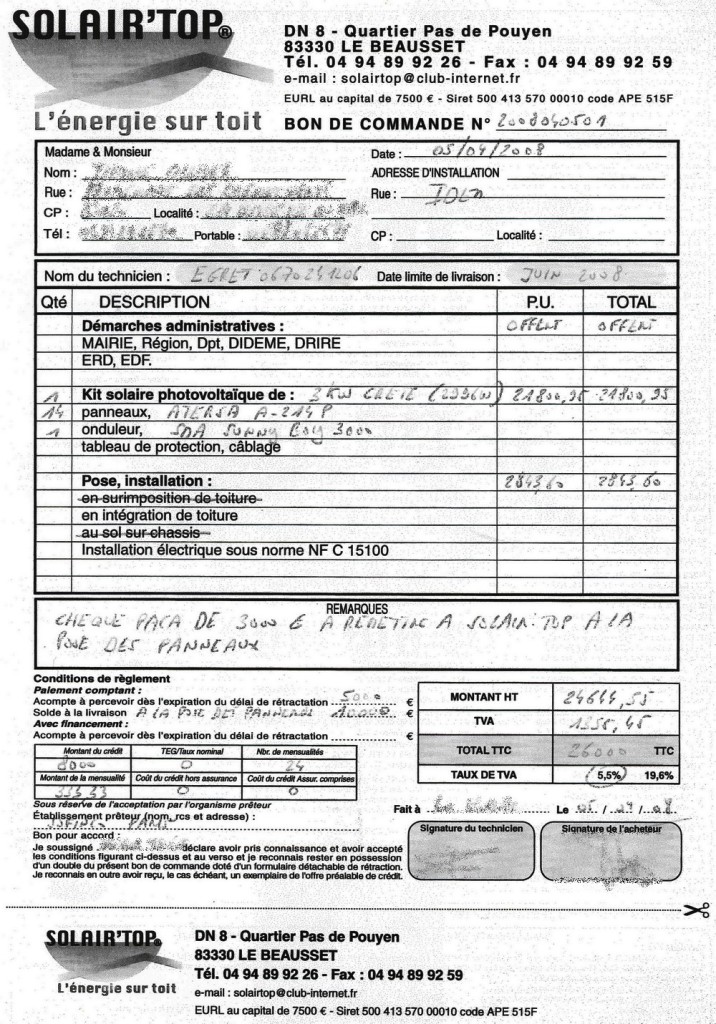 SOLAIR'TOP®
L'énergie sur toit
DN 8 - Quartier Pas de Pouyen
83330 LE BEAUSSET
Tél. 04 94 89 92 26 - Fax : 04 94 89 92 59
e-mail : solairtop@club-internet.fr
EURL au capital de 7500 € - Siret 500 413 570 00010 code APE 515F
BON DE COMMANDE N° 2008040501
Madame & Monsieur
Nom :
Rue :
CP : Localité :
Tél : Portable :
Date : 05/04/2008
ADRESSE D'INSTALLATION
Rue : IDEM
CP : Localité :
Nom du technicien : EGRET 0670241206 Date limite de livraison : JUIN 2008
Qté DESCRIPTION P.U. TOTAL
Démarches administratives : OFFERT OFFERT
MAIRIE, Région, Dpt, DIDEME, DRIRE
ERD, EDF.
1 Kit solaire photovoltaïque de : 3KW CRETE (2996W) 21800,95 21800,95
14 panneaux, ATERSA A-214P
1 onduleur, SMA SUNNY BOY 3000
tableau de protection, câblage
Pose, installation : 2843,60 2843,60
en surimposition de toiture
en intégration de toiture
au sol sur chassis
Installation électrique sous norme NF C 15100
REMARQUES
CHEQUE PACA DE 3000 € A REMETTRE A SOLAIR'TOP A LA
POSE DES PANNEAUX
Conditions de règlement
Paiement comptant :
Acompte à percevoir dès l'expiration du délai de rétractation 5000 €
Solde à la livraison A LA POSE DES PANNEAUX 10.000 €
Avec financement :
Acompte à percevoir dès l'expiration du délai de rétractation €
Montant du crédit TEG/Taux nominal Nbr. de mensualités
8000 0 24
Montant de la mensualité Coût du crédit hors assurance Coût du crédit Assur. comprises
333,33 0 0
Sous réserve de l'acceptation par l'organisme prêteur
Établissement prêteur (nom, rcs et adresse) :
Bon pour accord :
Je soussigné déclare avoir pris connaissance et avoir accepté
les conditions figurant ci-dessus et au verso et je reconnais rester en possession
d'un double du présent bon de commande doté d'un formulaire détachable de rétraction.
Je reconnais en outre avoir reçu, le cas échéant, un exemplaire de l'offre préalable de crédit.
MONTANT HT 24644,55
TVA 1355,45
TOTAL TTC 26000 TTC
TAUX DE TVA 5,5% 19,6%
Fait à Le 05 / 04 / 08
Signature du technicien
Signature de l'acheteur
SOLAIR'TOP®
L'énergie sur toit
DN 8 - Quartier Pas de Pouyen
83330 LE BEAUSSET
Tél. 04 94 89 92 26 - Fax : 04 94 89 92 59
e-mail : solairtop@club-internet.fr
EURL au capital de 7500 € - Siret 500 413 570 00010 code APE 515F